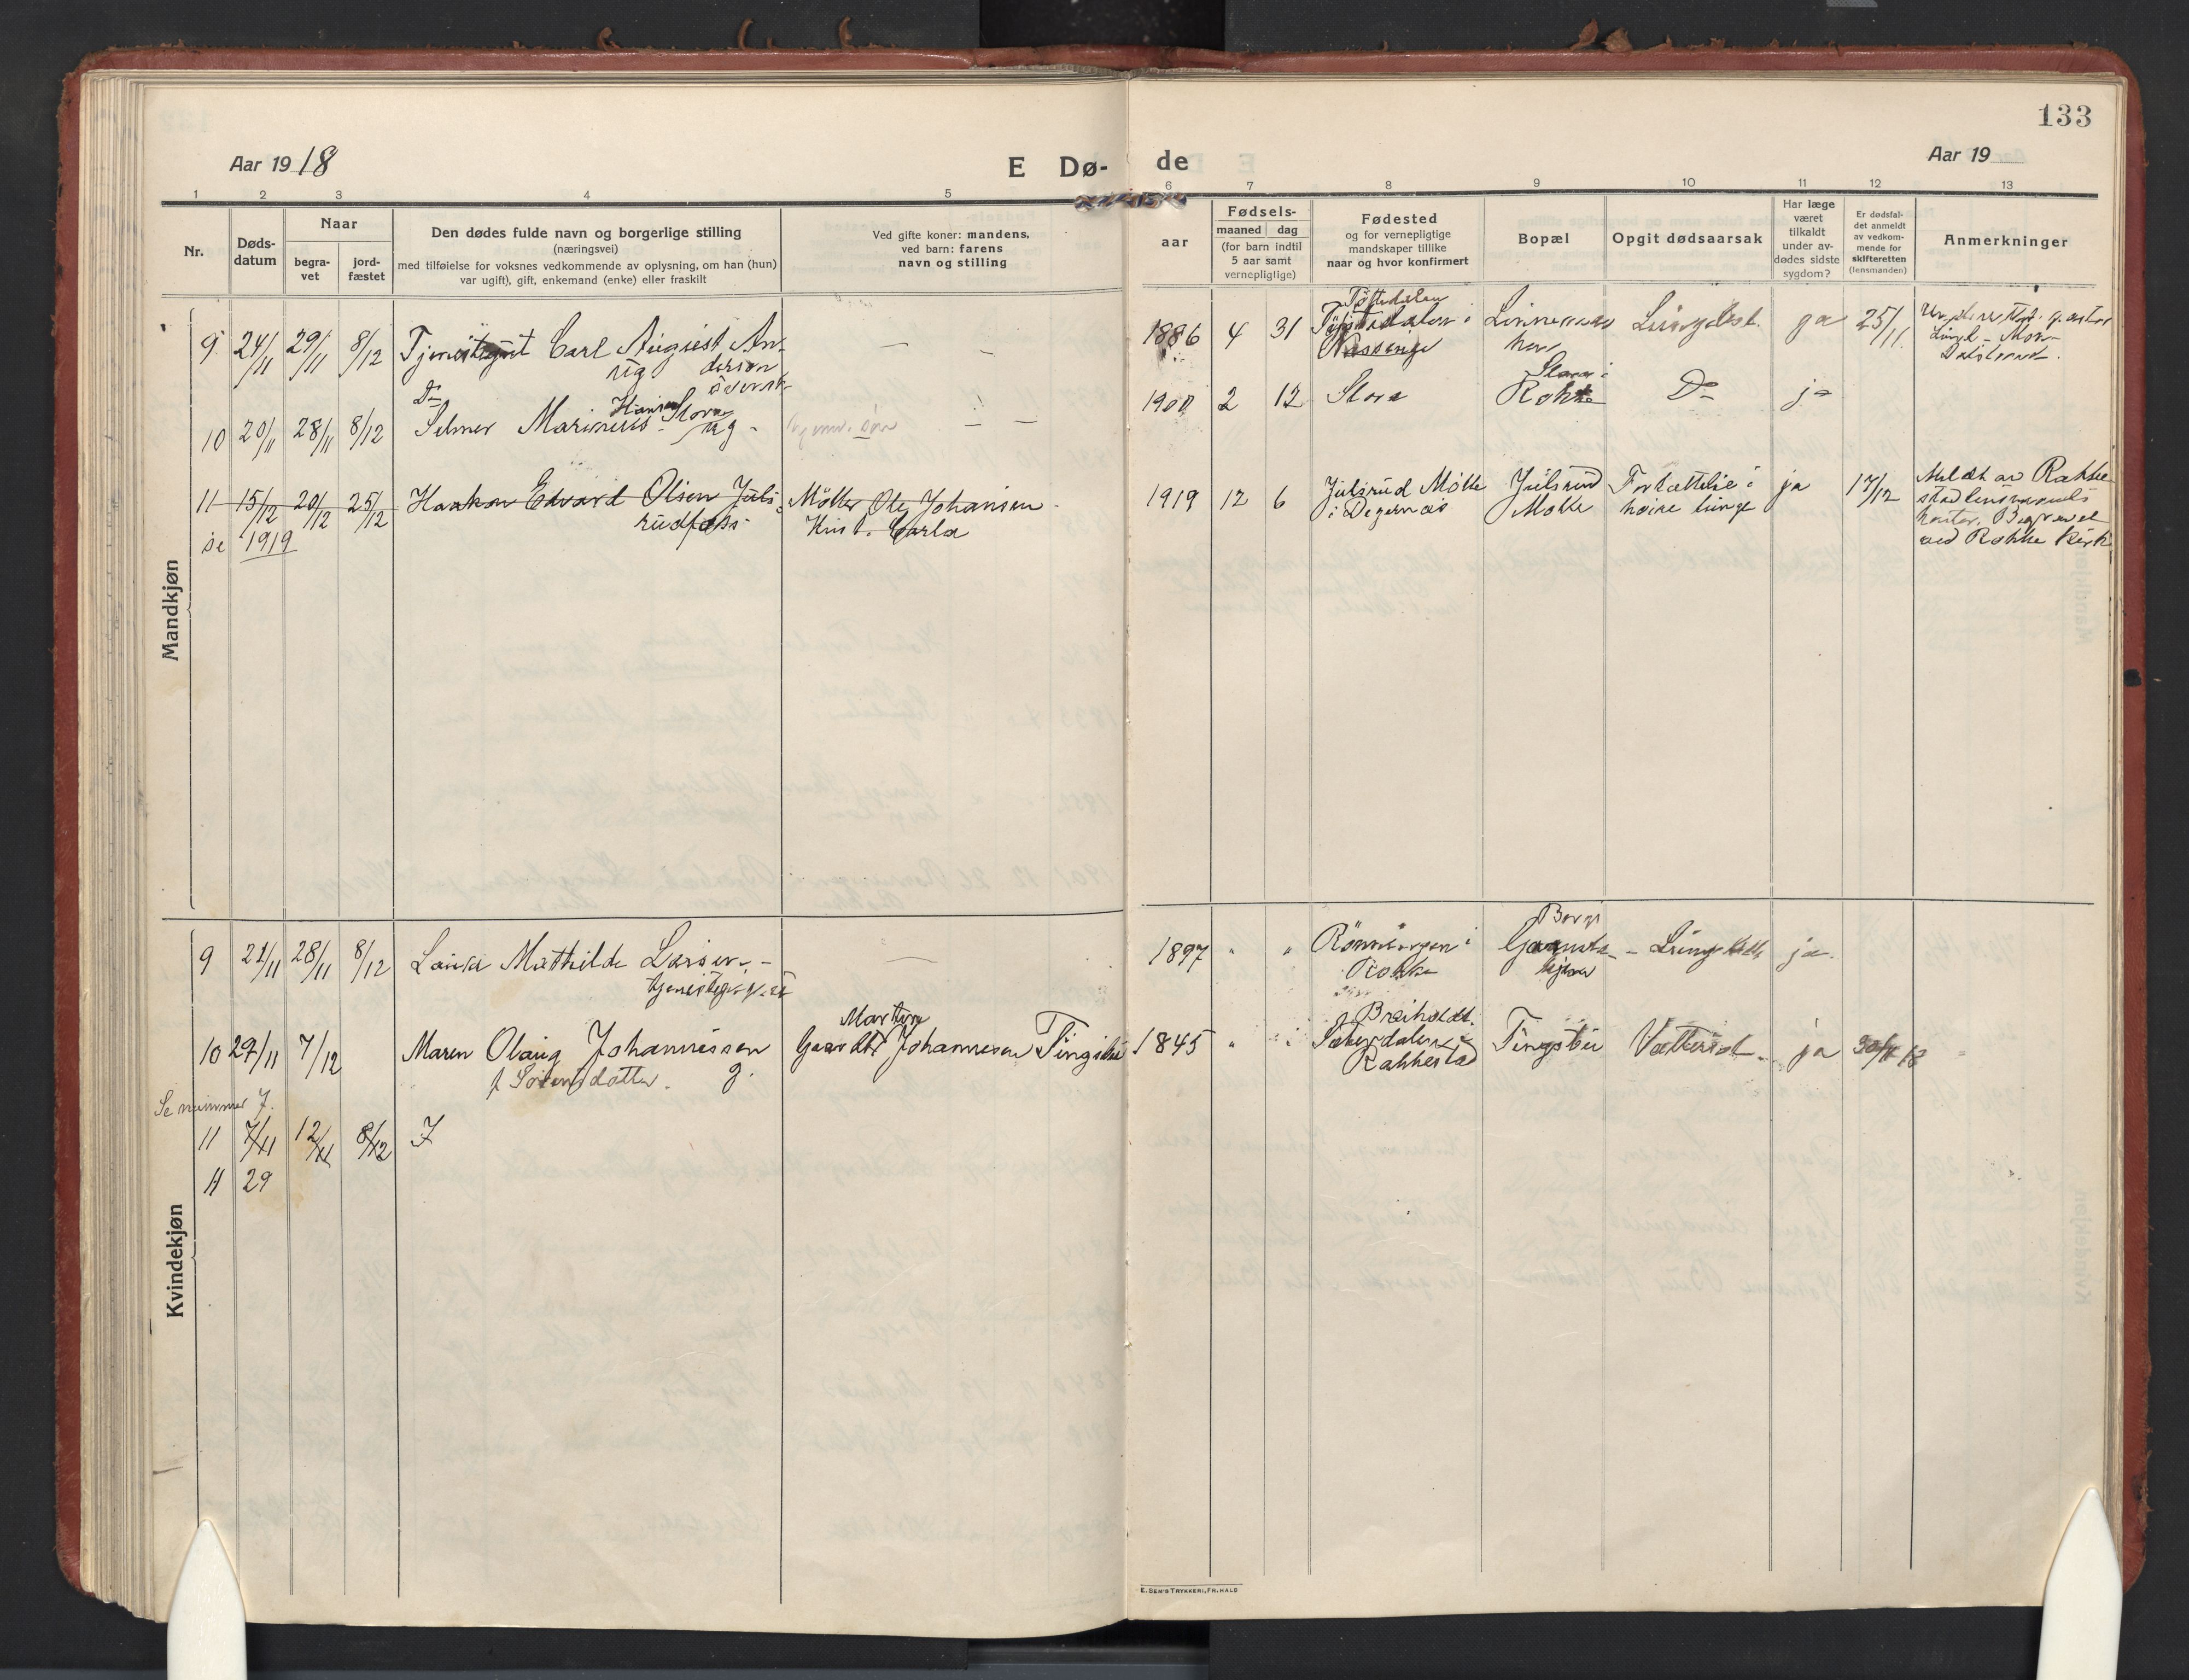 133
Aar 1918
E Dø-
de
Aar 19
1 2 3 4 5 6 7 8 9 10 11 12 13
Nr.
Døds-
datum
Naar
begra-
vet
jord-
fæstet
Den dødes fulde navn og borgerlige stilling
(næringsvei)
med tilføielse for voksnes vedkommende av oplysning, om han (hun)
var ugift), gift, enkemand (enke) eller fraskilt
Ved gifte koner: mandens,
ved barn: farens
navn og stilling
Fødsels-
aar
maaned dag
(for barn indtil
5 aar samt
vernepligtige)
Fødested
og for vernepligtige
mandskaper tillike
naar og hvor konfirmert
Bopæl
Opgit dødsaarsak
Har læge
været
tilkaldt
under av-
dødes sidste
sygdom?
Er dødsfal-
det anmeldt
av vedkom-
mende for
skifteretten
(lensmanden)
Anmerkninger
Mandkjøn
Tøftedalen
9 24/11 29/11 8/12 Tjenestegut Carl August An- — — 1886 4 31 i Lunge ja 25/11
ug dersson
svensk
Do
Hansen Slora i
10 20/11 28/11 8/12 Selmer Marinius Slora ug - — — 1900 2 12 Slora Rokke Do ja
11 15/12 20/12 25/12 Haakon Edvard Olsen Juls- Møller Ole Johansen 1919 12 6 Julsrud Mølle Julsrud Fortættelse i ja 17/12 Meldt av Rakke-
rudfoss i Degernæs Mølle høire lunge stad lensmands
Hust. Carla kontor. Begravet
se 1919 ved Rokke Kirke
Kvindekjøn
Borge
9 21/11 28/11 8/12 Mathilde Larsen - — 1897 " " i ja
Rokke
Martin Breiholdt
10 29/11 7/12 Maren Olaug Johannessen Johannesen Tingsbu 1845 " Tingsbu Vattersot ja 30/11 18
f. Sørensdatter. g. Rakkestad
Se nummer 7.
11 7/11 12/11 8/12 J
11 29
E. SEM'S TRYKKERI, FR.HALD